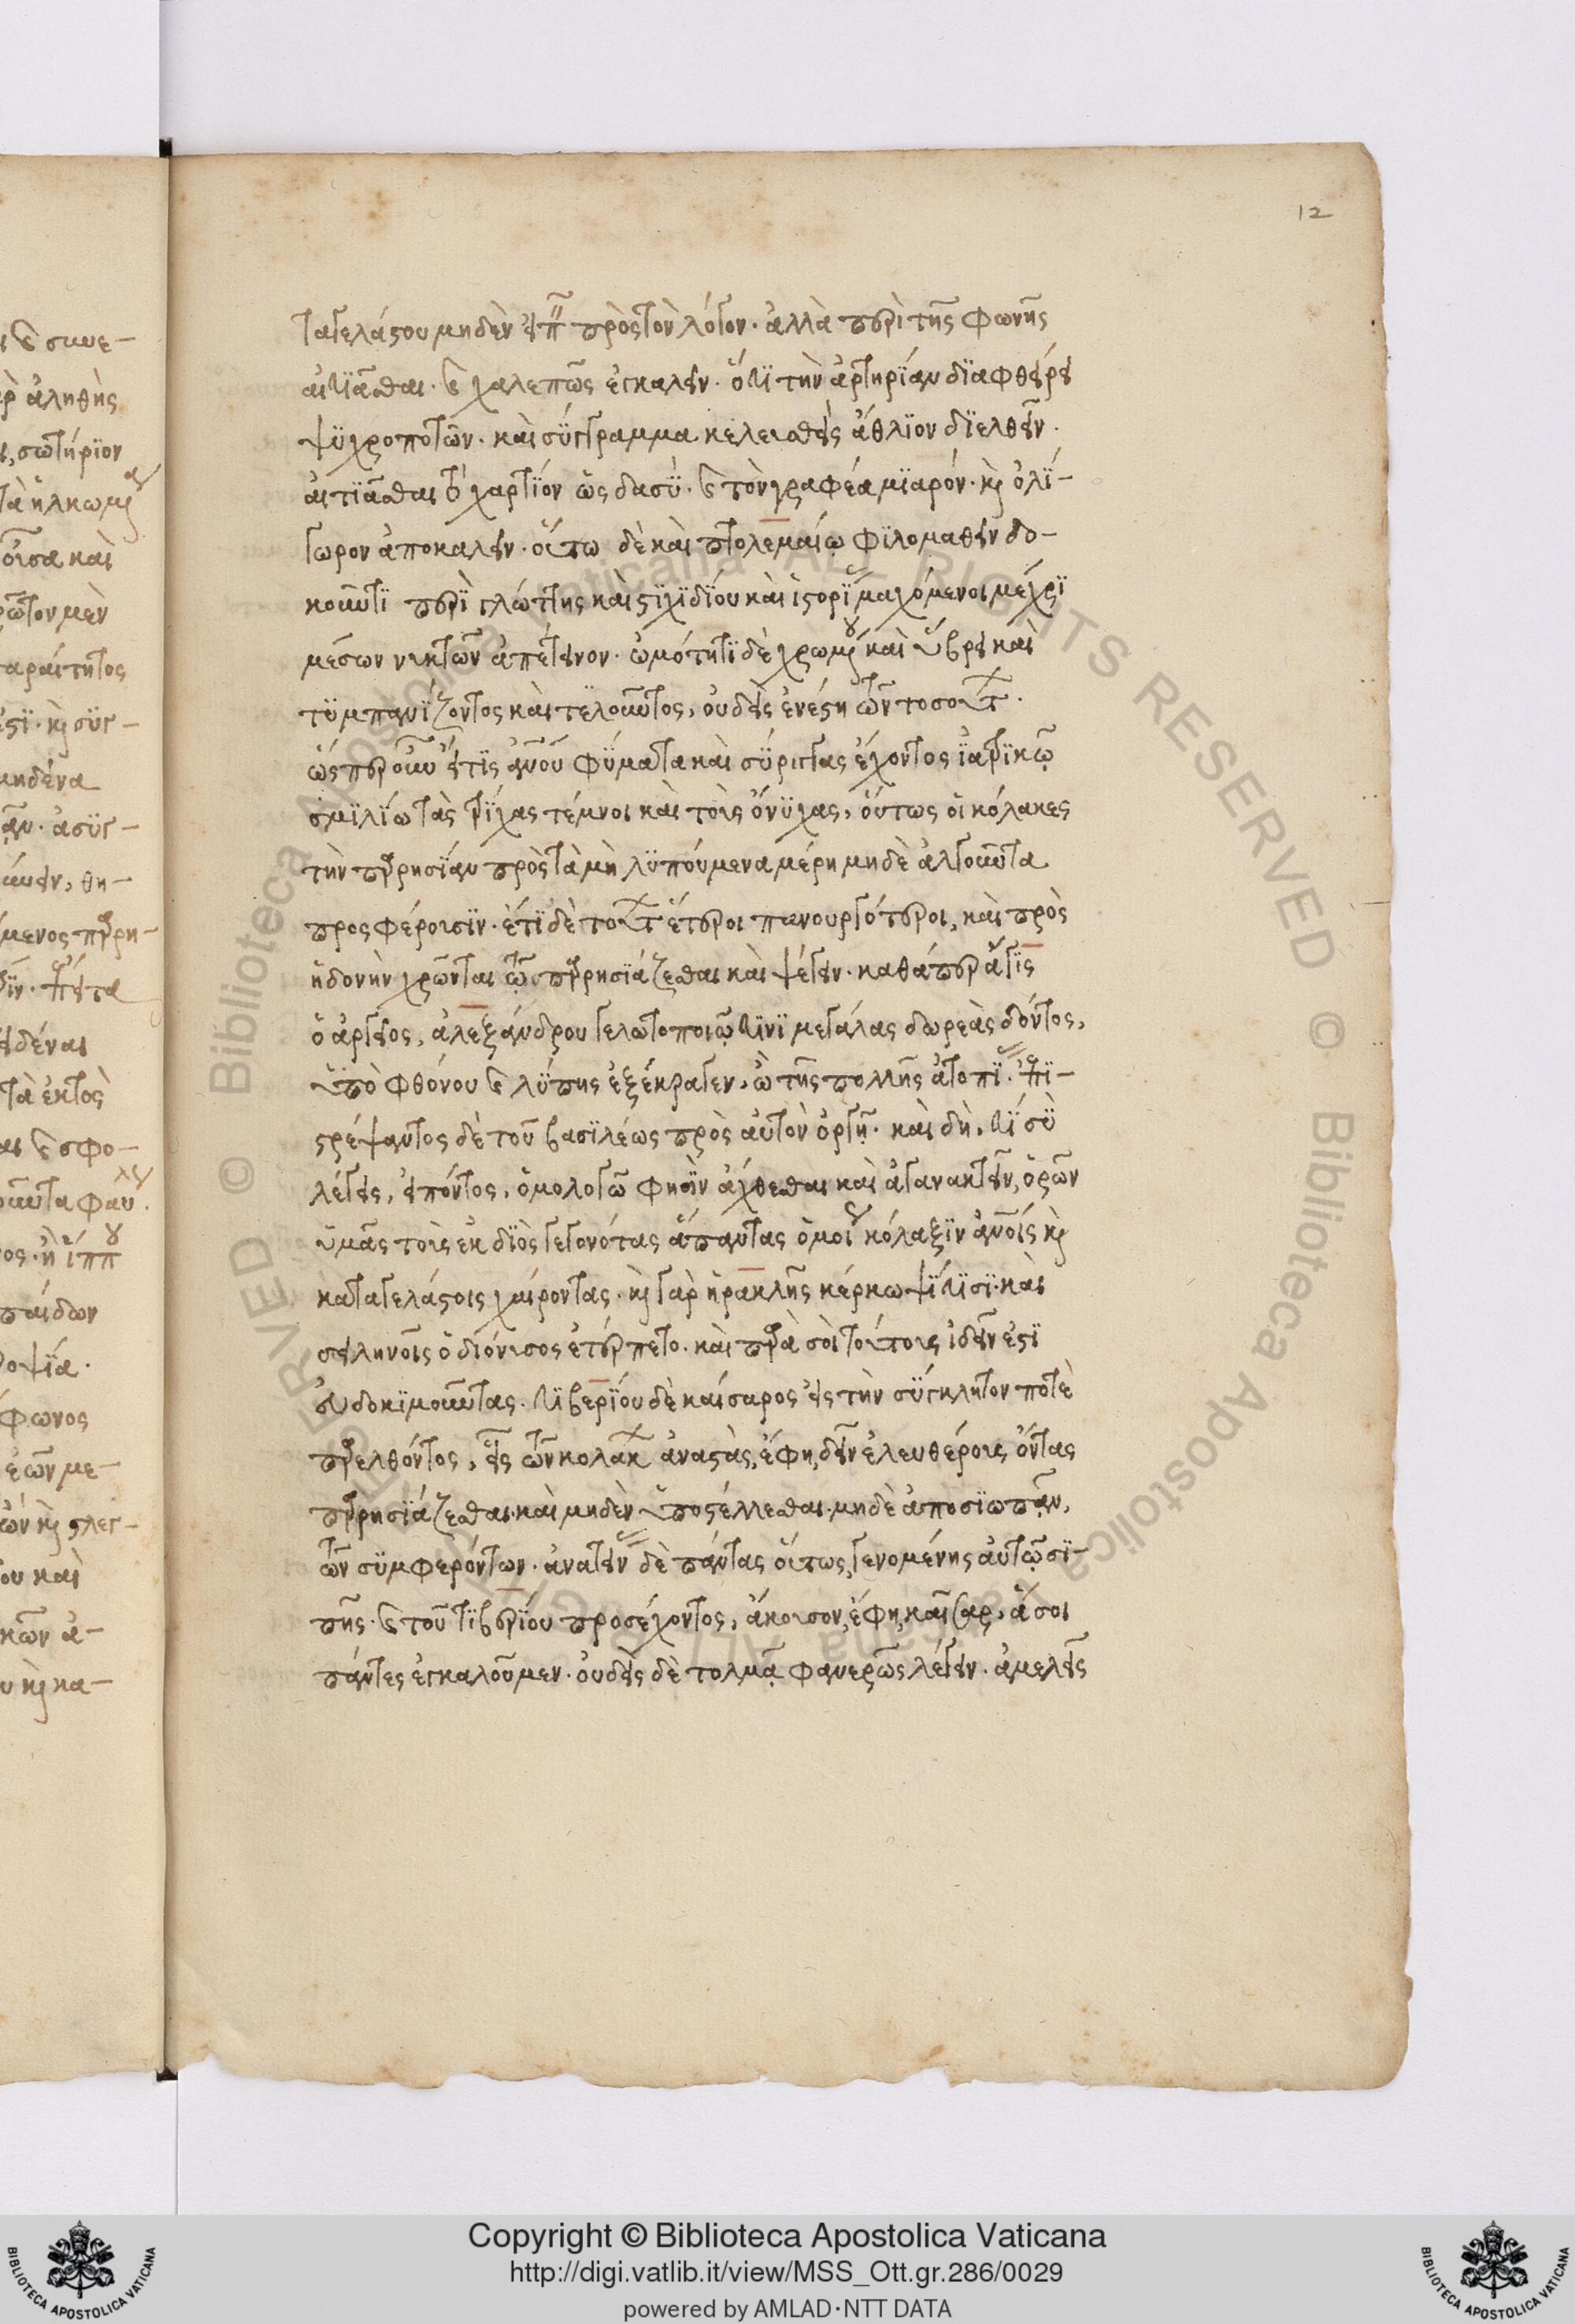 12
ταγελάστου μηδὲν εἰπεῖν πρὸς τὸν λόγον. ἀλλὰ περὶ τῆς φωνῆς
αἰτιᾶσθαι. καὶ χαλεπῶς ἐγκαλεῖν. ὅτι τὴν ἀρτηρίαν διαφθείρει
ψυχροποτῶν. καὶ σύγγραμμα κελευσθεὶς ἄθλιον διελθεῖν.
αἰτιᾶσθαι τὸ χαρτίον ὡς δασύ. καὶ τὸν γραφέα μιαρόν. καὶ ὀλί-
γωρον ἀποκαλεῖν. οὕτω δὲ καὶ πτολεμαίῳ φιλομαθεῖν δο-
κοῦντι περὶ γλώττης καὶ στιχιδίου καὶ ἱστορίας μαχόμενοι μέχρι
μέσων νυκτῶν ἀπέτεινον. ὠμότητι δὲ χρωμένου καὶ ὕβρει καὶ
τυμπανίζοντος καὶ τελοῦντος, οὐδεὶς ἐνέστη τῶν τοσούτων.
ὥσπερ οὖν εἴ τις ἀνθρώπου φύματα καὶ σύριγγας ἔχοντος ἰατρικῷ
σμιλίῳ τὰς τρίχας τέμνοι καὶ τοὺς ὄνυχας, οὕτως οἱ κόλακες
τὴν παρρησίαν πρὸς τὰ μὴ λυπούμενα μέρη μηδὲ ἀλγοῦντα
προσφέρουσιν. ἔτι δὲ τούτων ἕτεροι πανουργότεροι, καὶ πρὸς
ἡδονὴν χρῶνται τῷ παρρησιάζεσθαι καὶ ψέγειν. καθάπερ ἆγις
ὁ ἀργεῖος, ἀλεξάνδρου γελωτοποιῷ τινὶ μεγάλας δωρεὰς δόντος,
ὑπὸ φθόνου καὶ λύπης ἐξέκραγεν, ὢ τῆς πολλῆς ἀτοπίας. ἐπι-
στρέψαντος δὲ τοῦ βασιλέως πρὸς αὐτὸν ὀργῇ. καὶ δὴ, τί σὺ
λέγεις, εἰπόντος, ὁμολογῶ φησὶν ἄχθεσθαι καὶ ἀγανακτεῖν, ὁρῶν
ὑμᾶς τοὺς ἐκ διὸς γεγονότας ἅπαντας ὁμοίως κόλαξιν ἀνθρώποις καὶ
καταγελάστοις χαίροντας. καὶ γὰρ ἡρακλῆς κέρκωψί τισι. καὶ
σειληνοῖς ὁ διόνυσος ἐτέρπετο. καὶ παρὰ σοὶ τούτους ἰδεῖν ἐστὶ
εὐδοκιμοῦντας. τιβερίου δὲ καίσαρος εἰς τὴν σύγκλητον ποτὲ
παρελθόντος, εἷς τῶν κολάκων ἀναστὰς, ἔφη, δεῖν ἐλευθέρους ὄντας
παρρησιάζεσθαι. καὶ μηδὲν ὑποστέλλεσθαι. μηδὲ ἀποσιωπᾶν,
τῶν συμφερόντων. ἀνατείνας δὲ πάντας οὕτως, γενομένης αὐτῷ σι-
πῆς. καὶ τοῦ τιβερίου προσέχοντος, ἄκουσον, ἔφη, καῖσαρ, ἅ σοι
πάντες ἐγκαλοῦμεν. οὐδεὶς δὲ τολμᾷ φανερῶς λέγειν. ἀμελεῖς
Copyright © Biblioteca Apostolica Vaticana
http://digi.vatlib.it/view/MSS_Ott.gr.286/0029
powered by AMLAD·NTT DATA